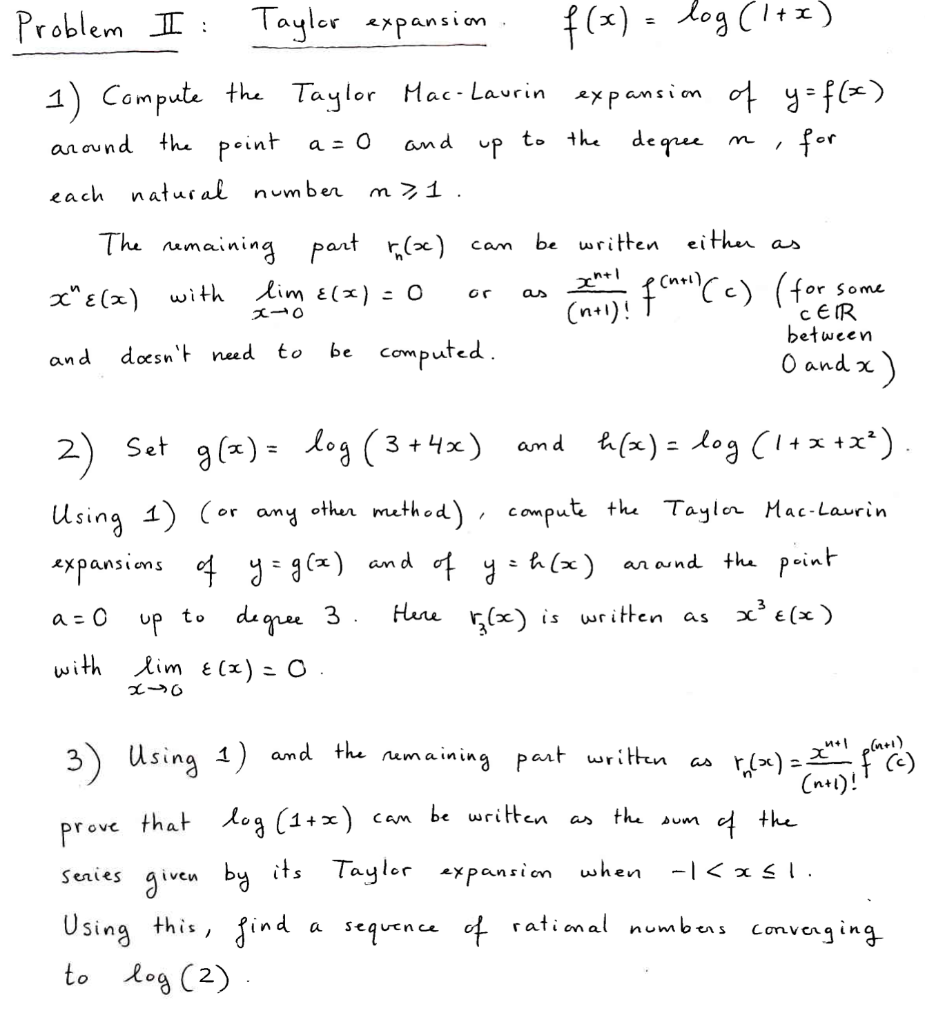 Problem II : Taylor expansion. f(x) = log(1+x)
1) Compute the Taylor Mac-Laurin expansion of y=f(x)
around the point a = 0 and up to the degree n, for
each natural number n ≥ 1.
The remaining part rₙ(x) can be written either as
xⁿ ε(x) with lim_{x→0} ε(x) = 0 or as x^{n+1}/(n+1)! f^{(n+1)}(c) (for some c∈ℝ between 0 and x)
and doesn't need to be computed.
2) Set g(x) = log(3+4x) and h(x) = log(1+x+x²).
Using 1) (or any other method), compute the Taylor Mac-Laurin
expansions of y = g(x) and of y = h(x) around the point
a = 0 up to degree 3. Here r₃(x) is written as x³ ε(x)
with lim_{x→0} ε(x) = 0.
3) Using 1) and the remaining part written as rₙ(x) = x^{n+1}/(n+1)! f^{(n+1)}(c)
prove that log(1+x) can be written as the sum of the
series given by its Taylor expansion when -1 < x ≤ 1.
Using this, find a sequence of rational numbers converging
to log(2).